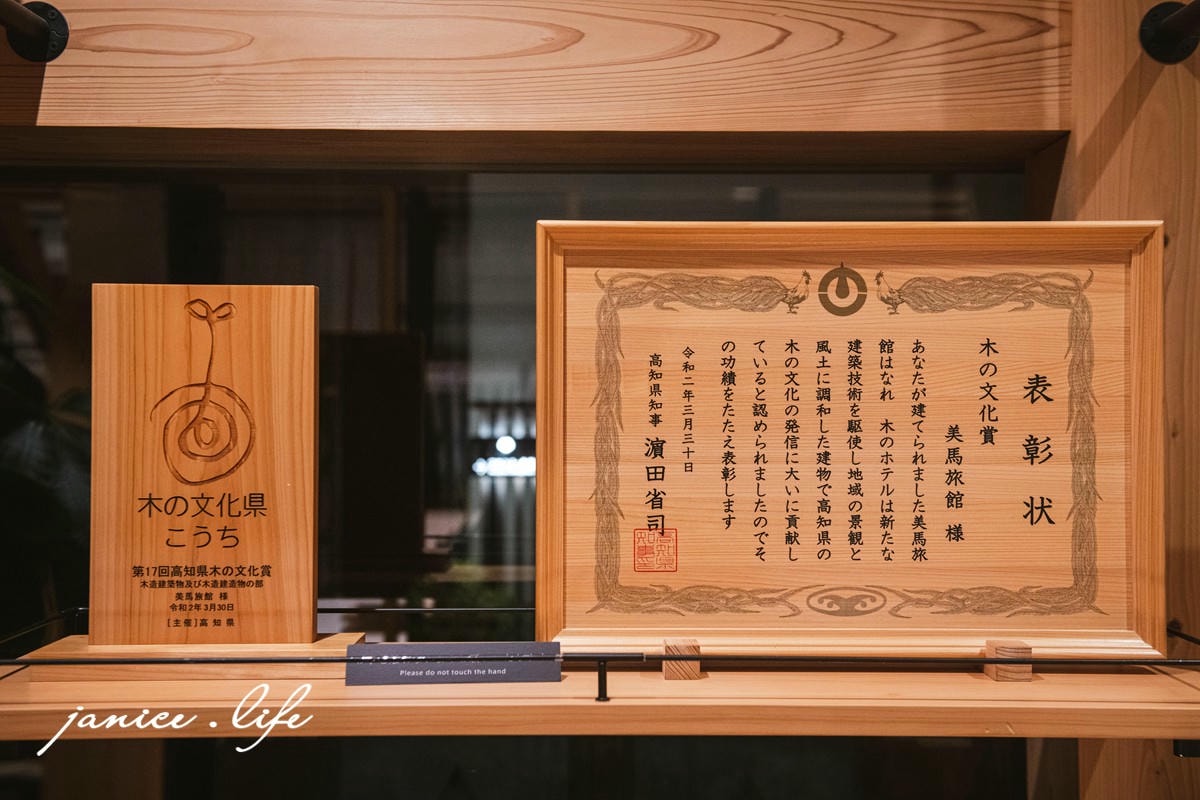 木の文化県
こうち
第17回高知県木の文化賞
木造建築物及び木造建造物の部
美馬旅館 様
令和2年3月30日
[主催]高知県
表彰状
木の文化賞
美馬旅館 様
あなたが建てられました美馬旅
館はなれ 木のホテルは新たな
建築技術を駆使し地域の景観と
風土に調和した建物で高知県の
木の文化の発信に大いに貢献し
ていると認められましたのでそ
の功績をたたえ表彰します
令和二年三月三十日
高知県知事 濵田省司
Please do not touch the hand
janice.life